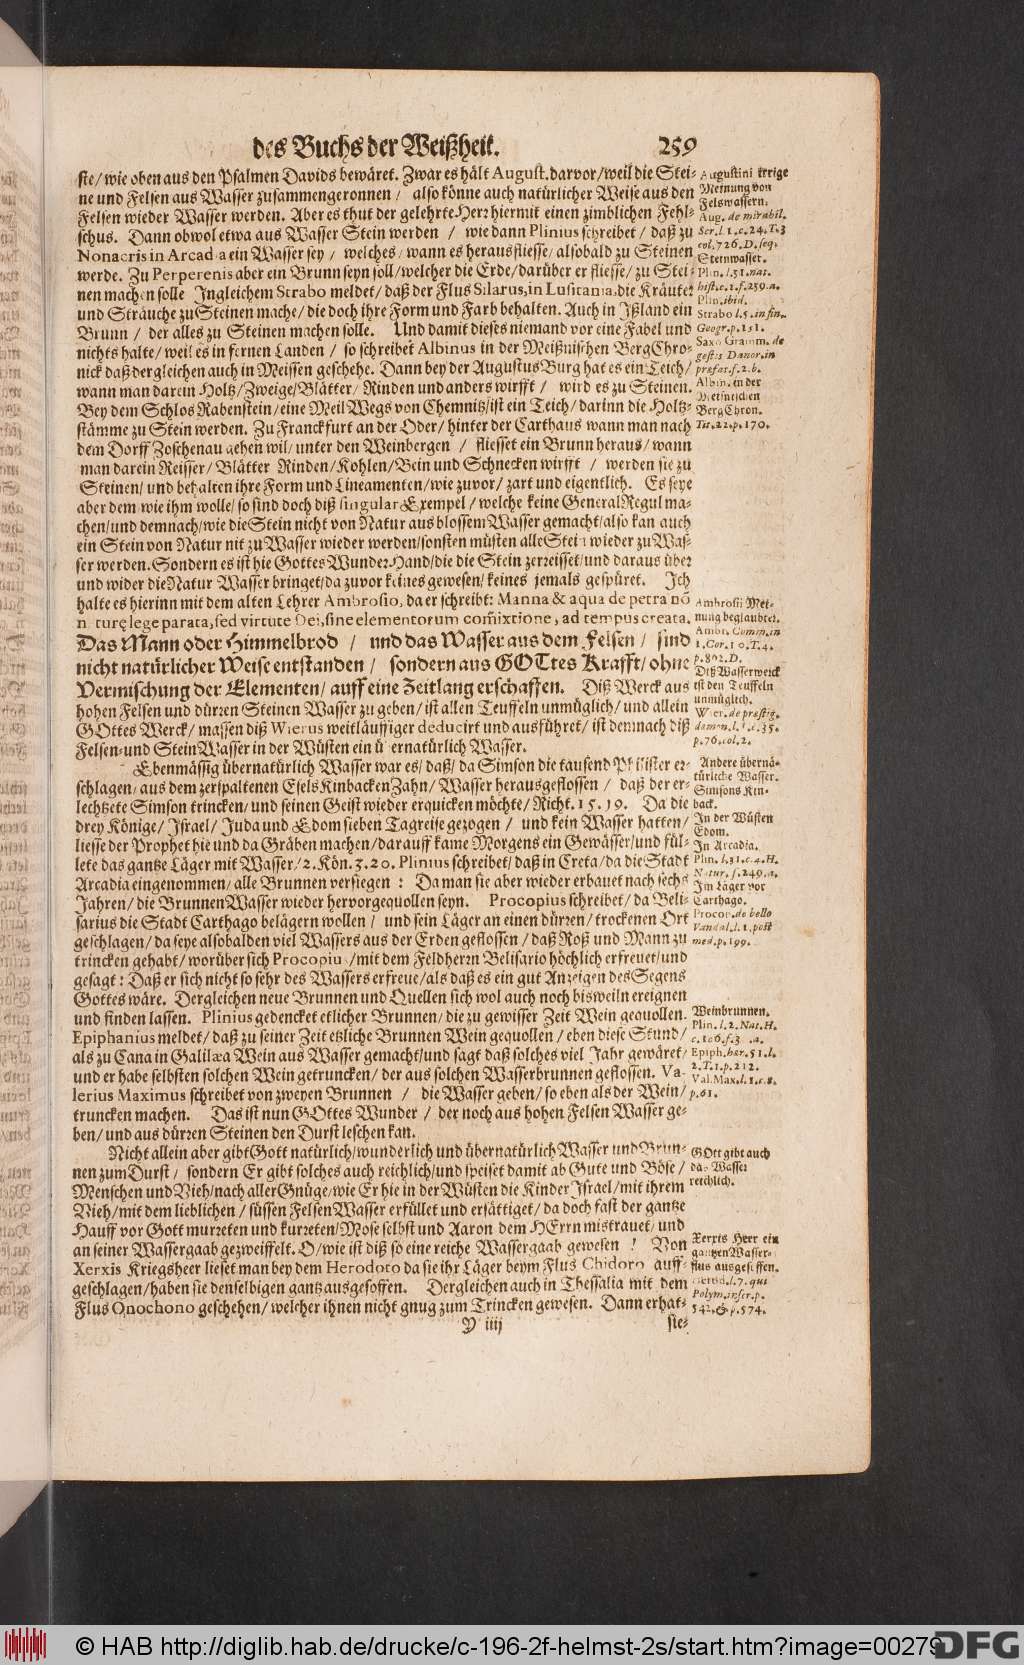 des Buchs der Weißheit. 259
ste/ wie oben aus den Psalmen Davids bewäret. Zwar es hält August. darvor/ weil die Stei-
ne und Felsen aus Wasser zusammengeronnen / also könne auch natürlicher Weise aus den
Felsen wieder Wasser werden. Aber es thut der gelehrte Herr hiermit einen zimblichen Fehl-
schus. Dann obwol etwa aus Wasser Stein werden / wie dann Plinius schreibet / daß zu
Nonacris in Arcadia ein Wasser sey / welches / wann es heraus fliesse/ alsobald zu Steinen
werde. Zu Perperenis aber ein Brunn seyn soll/ welcher die Erde/ darüber er fliesse/ zu Stei-
nen machen solle Ingleichem Strabo meldet/ daß der Flus Silarus, in Lusitania, die Kräuter
und Sträuche zu Steinen mache/ die doch ihre Form und Farb behalten. Auch in Ißland ein
Brunn / der alles zu Steinen machen solle. Und damit diests niemand vor eine Fabel und
nichts halte/ weil es in fernen Landen / so schreibet Albinus in der Meißnischen Berg Chro-
nick daß dergleichen auch in Meissen geschehe. Dann bey der Augustus Burg hat es ein Teich/
wann man darein Holtz/ Zweige/ Blätter/ Rinden und anders wirfft / wird es zu Steinen.
Bey dem Schlos Rabenstein/ eine Meil Wegs von Chemnitz/ ist ein Teich/ darinn die Holtz-
stämme zu Stein werden. Zu Franckfurt an der Oder/ hinter der Carthaus wann man nach
dem Dorff Zoschenau gehen wil/ unter den Weinbergen / fliesset ein Brunn heraus/ wann
man darein Reisser/ Blätter Rinden/ Kohlen/ Bein und Schnecken wirfft / werden sie zu
Steinen/ und behalten ihre Form und Lineamenten/ wie zuvor/ zart und eigentlich. Es seye
aber dem wie ihm wolle/ so sind doch diß singular Exempel/ welche keine General Regul ma-
chen/ und demnach/ wie die Stein nicht von Natur aus blossem Wasser gemacht/ also kan auch
ein Stein von Natur nit zu Wasser wieder werden/ sonsten müsten alle Stein wieder zu Was-
ser werden. Sondern es ist hie Gottes Wunder-Hand/ die die Stein zerreisset/ und daraus über
und wider die Natur Wasser bringet/ da zuvor keines gewesen/ keines jemals gespüret. Ich
halte es hierinn mit dem alten Lehrer Ambrosio, da er schreibt: Manna & aqua de petra nõ
n turę lege parata, sed virtute Dei, sine elementorum com̃ixtione, ad tempus creata.
Das Mann oder Himmelbrod / und das Wasser aus dem Felsen / sind
nicht natürlicher Weise entstanden / sondern aus GOTtes Krafft/ ohne
Vermischung der Elementen/ auff eine Zeitlang erschaffen. Diß Werck aus
hohen Felsen und dürren Steinen Wasser zu geben/ ist allen Teuffeln unmüglich/ und allein
GOttes Werck/ massen diß Wierus weitläuffiger deducirt und ausführet/ ist demnach diß
Felsen- und Stein Wasser in der Wüsten ein ü ernatürlich Wasser.
Ebenmässig übernatürlich Wasser war es/ daß/ da Simson die tausend Philister er-
schlagen/ aus dem zerspaltenen Esels Kinbacken Zahn/ Wasser herausgeflossen / daß der er-
lechtzete Simson trincken/ und seinen Geist wieder erquicken möchte/ Richt. 15. 19. Da die
drey Könige/ Israel/ Juda und Edom sieben Tagreise gezogen / und kein Wasser hatten/
liesse der Prophet hie und da Gräben machen/ darauff kame Morgens ein Gewässer/ und fül-
lete das gantze Läger mit Wasser/ 2. Kön. 3. 20. Plinius schreibet/ daß in Creta/ da die Stadt
Arcadia eingenommen/ alle Brunnen versiegen : Da man sie aber wieder erbauet nach sechs
Jahren/ die Brunnen Wasser wieder hervorgequollen seyn. Procopius schreibet/ da Beli-
sarius die Stadt Carthago belägern wollen / und sein Läger an einen dürren/ trockenen Ort
geschlagen/ da seye alsobalden viel Wassers aus der Erden geflossen / daß Roß und Mann zu
trincken gehabt/ worüber sich Procopiu / mit dem Feldherrn Belisario höchlich erfreuet/ und
gesagt : Daß er sich nicht so sehr des Wassers erfreue/ als daß es ein gut Anzeigen des Segens
Gottes wäre. Dergleichen neue Brunnen und Quellen sich wol auch noch bisweiln ereignen
und finden lassen. Plinius gedencket etlicher Brunnen/ die zu gewisser Zeit Wein gequollen.
Epiphanius meldet/ daß zu seiner Zeit etzliche Brunnen Wein gequollen / eben diese Stund/
als zu Cana in Galilæa Wein aus Wasser gemacht/ und sagt daß solches viel Jahr gewäret/
und er habe selbsten solchen Wein getruncken/ der aus solchen Wasserbrunnen geflossen. Va-
lerius Maximus schreibet von zweyen Brunnen / die Wasser geben/ so eben als der Wein/
truncken machen. Das ist nun GOttes Wunder / der noch aus hohen Felsen Wasser ge-
ben/ und aus dürren Steinen den Durst leschen kan.
Nicht allein aber gibt Gott natürlich/ wunderlich und übernatürlich Wasser und Brun-
nen zum Durst / sondern Er gibt solches auch reichlich/ und speiset damit ab Gute und Böse /
Menschen und Vieh/ nach aller Gnüge/ wie Er hie in der Wüsten die Kinder Israel/ mit ihrem
Vieh/ mit dem lieblichen / süssen Felsen Wasser erfüllet und ersättiget/ da doch fast der gantze
Hauff vor Gott murreten und kurreten/ Mose selbst und Aaron dem HErrn mistrauet/ und
an seiner Wassergaab gezweiffelt. O/ wie ist diß so eine reiche Wassergaab gewesen ! Von
Xerxis Kriegsheer lieset man bey dem Herodoto da sie ihr Läger beym Flus Chidoro auff-
geschlagen/ haben sie denselbigen gantz ausgesoffen. Dergleichen auch in Thessalia mit dem
Flus Onochono geschehen/ welcher ihnen nicht gnug zum Trincken gewesen. Dann er hat-
Y iiij sie-
Augustini irrige
Meinung von
Felswassern.
Aug. de mirabil.
Scr. l. 1. c. 24. T. 3
col. 726. D. seq.
Steinwasser.
Plin. l. 31. nat.
hist. c. 2. f. 259. a.
Plin. ibid.
Strabo l. 5. in fin.
Geogr. p. 151.
Saxo Gramm. de
gestis Danor. in
præfat. f. 2. b.
Albin. in der
Meißnischen
Berg Chron.
Tit. 22. p. 170.
Ambrosii Mei-
nung beglaubter.
Ambr. Comm. in
1. Cor. 10. T. 4.
p. 802. D.
Diß Wasserwerck
ist den Teuffeln
unmüglich.
Wier. de præstig.
dæmon. l. 1. c. 35.
p. 76. col. 2.
Andere übernä-
türliche Wasser.
Simsons Kin-
back.
In der Wüsten
Edom.
In Arcadia.
Plin. l. 31. c. 4. H.
Natur. f. 249. a.
Im Läger vor
Carthago.
Procop. de bello
Vandal. l. 1. post
med. p. 199.
Weinbrunnen.
Plin. l. 2. Nat. H.
c. 106. f. 3 . a.
Epiph. hær. 51. l.
2. T. 1. p. 212.
Val. Max. l. 1. c. 8.
p. 61.
GOtt gibt auch
das Wasser
reichlich.
Xerxis Heer ein
gantzen Wasser-
flus ausgesoffen.
Herod. l. 7. qui
Polym. inscr. p.
542. & p. 574.
© HAB http://diglib.hab.de/drucke/c-196-2f-helmst-2s/start.htm?image=00279
DFG